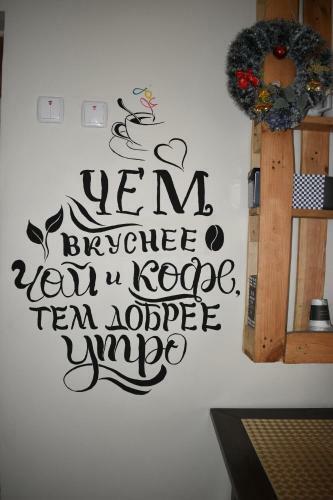 ЧЕМ
ВКУСНЕЕ
Чай и Кофе,
ТЕМ ДОБРЕЕ
утро